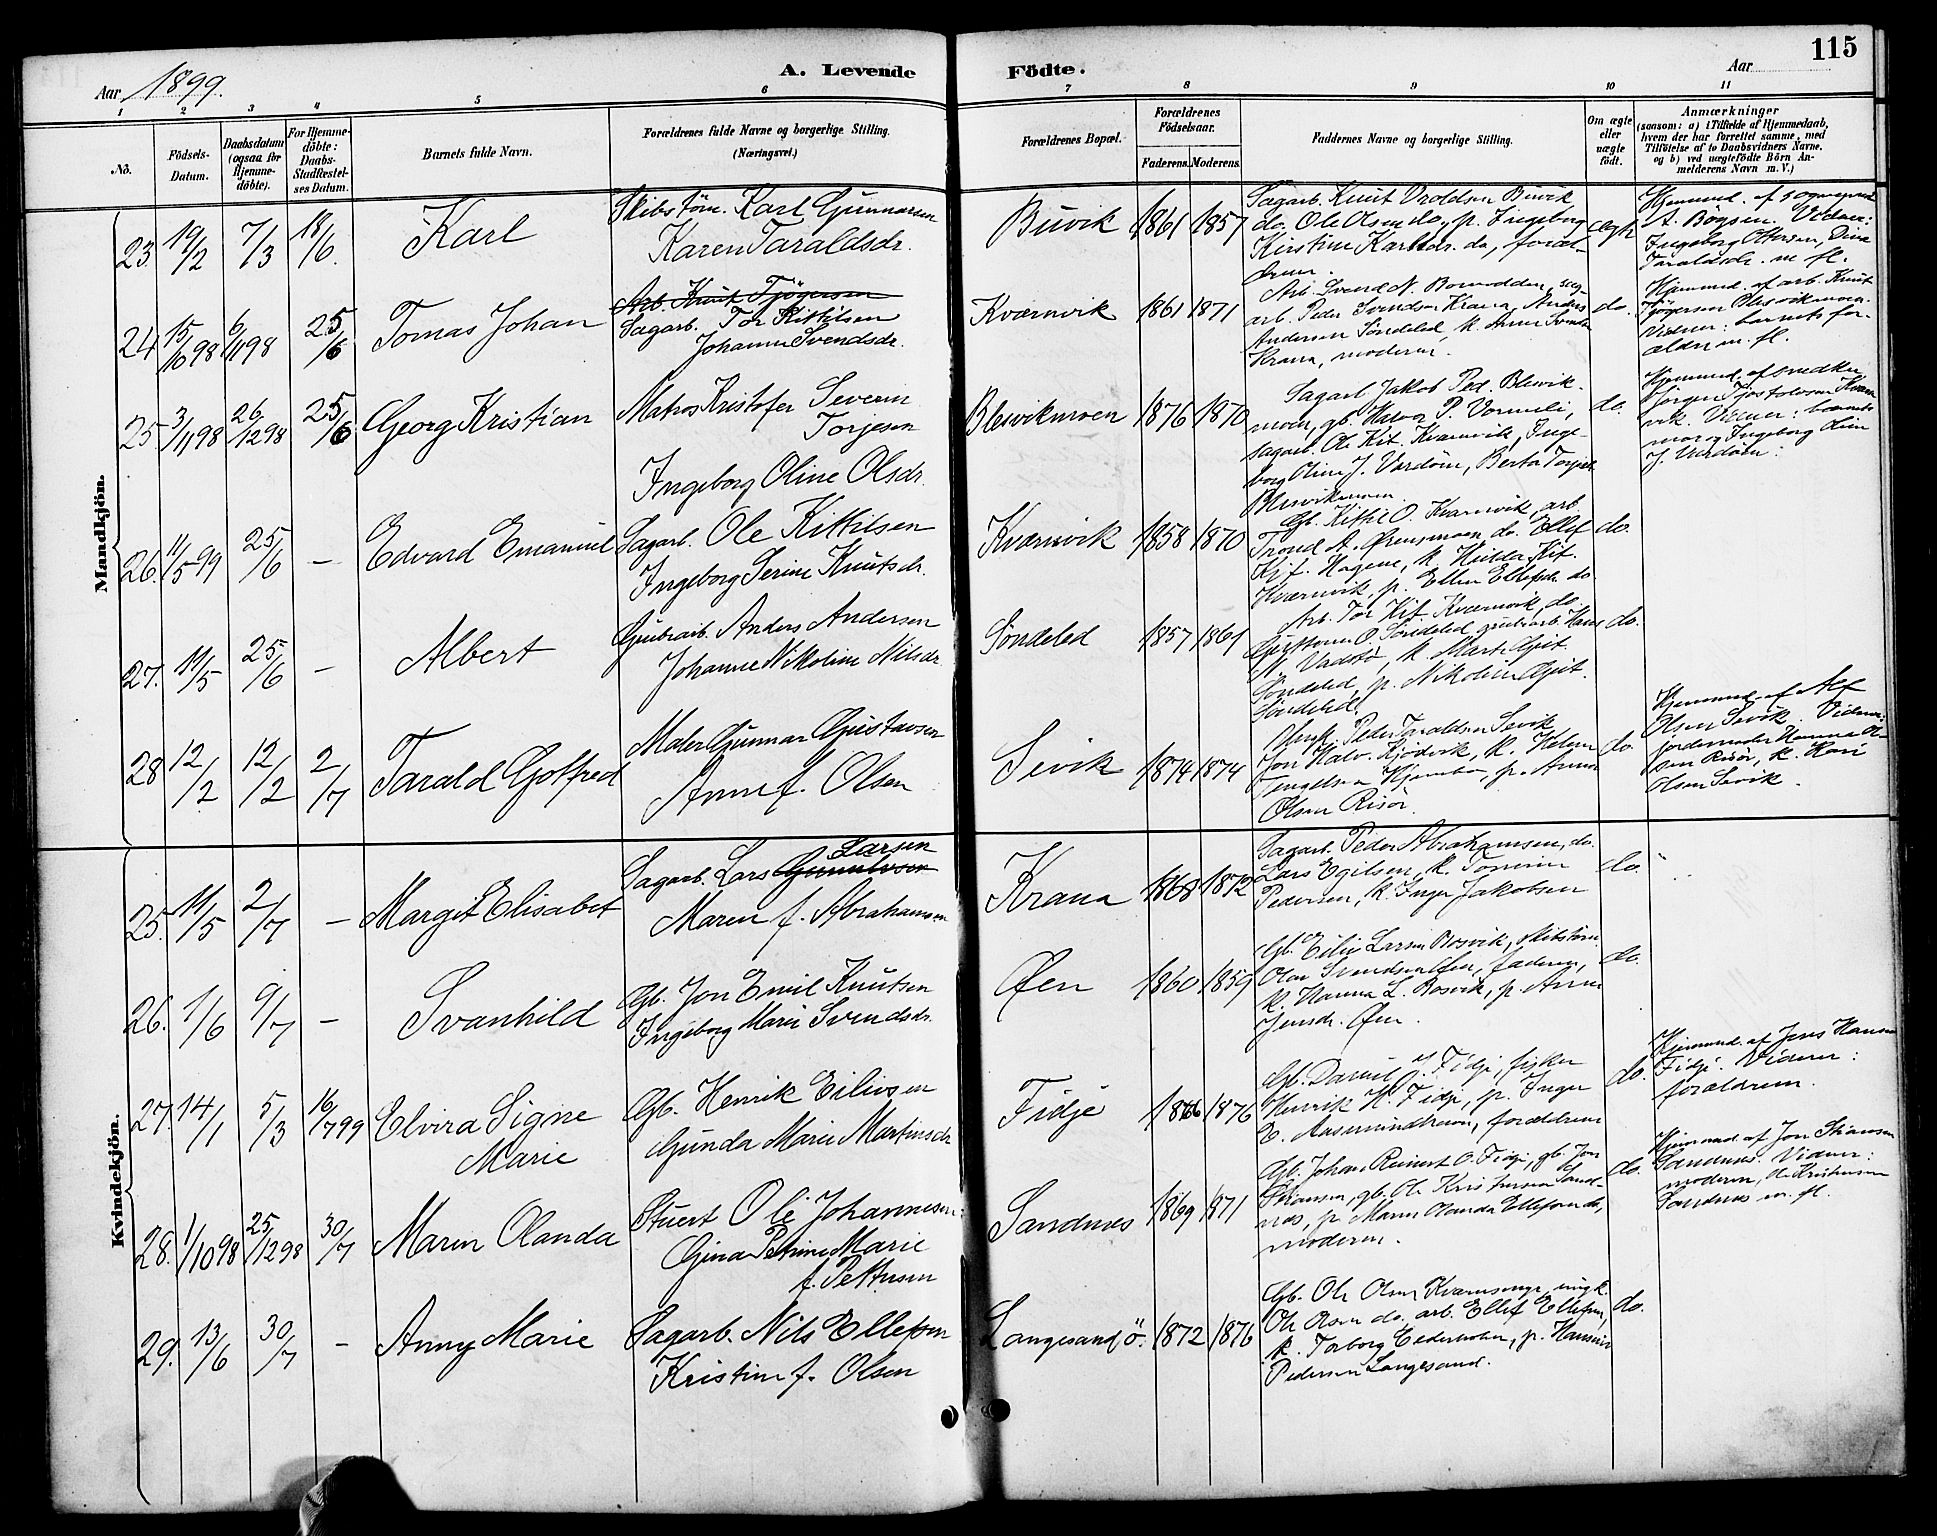 115
A. Levende Födte.
Aar 1899.
Aar
1 2 3 4 5 6 7 8 9 10 11
No.
Födsels-Datum.
Daabsdatum (ogsaa for Hjemme-döbte).
For Hjemme-döbte: Daabs-Stadfæstel-ses Datum.
Barnets fulde Navn.
Forældrenes fulde Navne og borgerlige Stilling.
(Næringsvei.)
Forældrenes Bopæl.
Forældrenes Födselsaar.
Faderens. Moderens.
Faddernes Navne og borgerlige Stilling.
Om ægte eller uægte födt.
Anmærkninger
(saasom: a) i Tilfælde af Hjemmedaab,
hvem der har forrettet samme, med
Tilföielse af to Daabsvidners Navne,
og b) ved uægtefödte Börn An-
melderens Navn m. V.)
Mandkjön.
23. 19/2 7/3 18/6 Karl
Skibstöm. Karl Gunnarsen
Karen Taraldsdr.
Buvik 1861 1857
Sagarb. Knut Vroldsen Buvik
do. Ole Olsen do, p. Ingeborg
Kirstine Karlsdr. do, foræl-
drene.
ægte
Hjemmed. af sogneprest
A. Bögsen. Vidner:
Ingeborg Ottersen, Dina
Taraldsdr. m fl.
24 15/10 98 6/11 98 25/6 Tomas Johan
Arb. Knut Tjögersen
Sagarb. Tor Kittilsen
Johanne Svendsdr.
Kværnvik 1861 1871
Arb. Svend N. Bommodden, sag-
arb. Peder Svendsen Krana, Anders
Andersen Söndeled, k. Anne Svends
Krana, moderen.
do.
Hjemmed. af arb. Knut
Tjögersen Blesvikmoen.
Vidner: barnets for-
ældre m. fl.
25 3/11 98 26/12 98 25/6 Georg Kristian
Matros Kristofer Severin
Torjesen
Ingeborg Oline Olsdr.
Blesvikmoen 1876 1870
Sagarb Jakob Ped. Blesvik-
moen, gb. Halvor P. Vormeli,
sagarb. Ole Kit. Kværnvik, Inge-
borg Oline J. Vardöen, Berta Torjes
Blesvikmoen.
do.
Hjemmed. af snedker
Jörgen Tjostolvsen Kværn
vik. Vidner: barnets
mor og Ingeborg Oline
J. Vardöen.
26. 11/5 99 25/6 – Edvard Emanuel
Sagarb. Ole Kittilsen
Ingeborg Serine Knutsdr.
Kværnvik 1858 1870
Gb. Kittil O. Kværnvik, arb.
Trond A. Ørensmoen, do. Ellef
Kjf. Hagene, k. Hulda Kit.
Kværnvik, p. Ellen Ellefsdr. do
do.
27. 11/5 25/6 – Albert
Grubearb. Anders Andersen
Johanne Nikoline Nilsdr.
Söndeled 1857 1861
Arb. Tor Kit. Kværnvik, do.
Guttorm O. Söndeled, grubearb. Hans
N. Vadstö, k. Marte Gjit.
Söndeled, p. Nikoline Gjit.
Söndeled.
do.
28 12/2 12/2 2/7 Tarald Gotfred
Maler Gunnar Gustavsen
Anne f. Olsen
Sevik 1874 1874
Peder Taraldsen Sevik
Jon Halv. Kjödvik, k. Helene
Tengelsen Hjembo, p. Anna
Olsen Risör.
do.
Hjemmed. af Alf
Olsen Sevik. Vidner:
jordemoder Hanna Ol-
sen Risör, k. Kari
Olsen Sevik.
Kvindekjön.
25. 11/5 2/7 – Margit Elisabet
Larsen
Sagarb. Lars Gunnlevsen
Maren f. Abrahamsen
Krana 1868 1872
Sagarb. Peder Abrahamsen, do.
Lars Egilsen, k. Tomine
Pedersen, k. Inger Jakobsen
do.
26. 1/6 9/7 – Svanhild
Gb. Jon Emil Knutsen
Ingeborg Marie Svendsdr.
Øen 1860 1859
Gb. Eilif Larsen Bosvik, skibstöm.
Olav Svendsen Øen, faderen,
k. Hanna L. Bosvik, p. Anne
Jensdr. Øen.
do.
27. 14/1 5/3 16/7 99 Elvira Signe
Marie
Gb. Henrik Eilivsen
Gunda Marie Martinsdr
Fidje 1866 1876
Gb. Daniel J. Fidje, fisker
Henrik H. Fidje, p. Inger
E. Aasmundhavn, forældrene
do.
Hjemmed. af Jens Hansen
Fidje. Vidner:
forældrene.
28. 1/10 98 25/12 98 30/7 Maren Olanda
Stuert Ole Johannesen
Gina Petrine Marie
f. Pettersen
Sandnes 1869 1871
Gb. Johan Reinert O. Fidje, gb. Jon
Stiansen, gb. Ole Kristensen Sand-
nes, p. Maren Olanda Ellefsen do,
moderen.
do.
Hjemmed af Jon Stiansen
Sandnes. Vidner:
moderen, Ole Kristensen
Sandnes m. fl.
29. 13/6 30/7 – Anny Marie
Sagarb. Nils Ellefsen
Kristine f. Olsen
Langesand Ö. 1872 1876
Gb. Ole Olsen Kvernsmyr, ungk.
Ole Olsen do, arb. Ellef Ellefsen,
k. Torborg Cederholm, p. Hansine
Pedersen Langesand.
do.